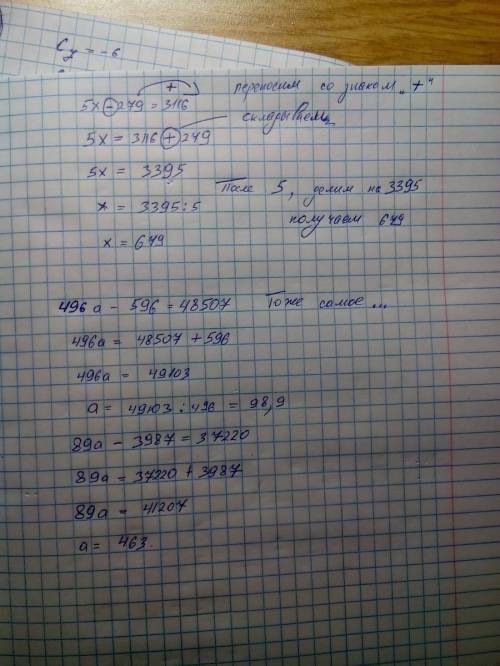 Cy = -6
+
5x - 279 = 3116 переносим со знаком „+"
5x = 3116 + 279 складываем
5x = 3395
После 5, делим на 3395
x = 3395 : 5
получаем 679
x = 679
496a - 596 = 48507 Тоже самое ...
496a = 48507 + 596
496a = 49103
a = 49103 : 496 = 98,9
89a - 3987 = 37220
89a = 37220 + 3987
89a = 41207
a = 463.